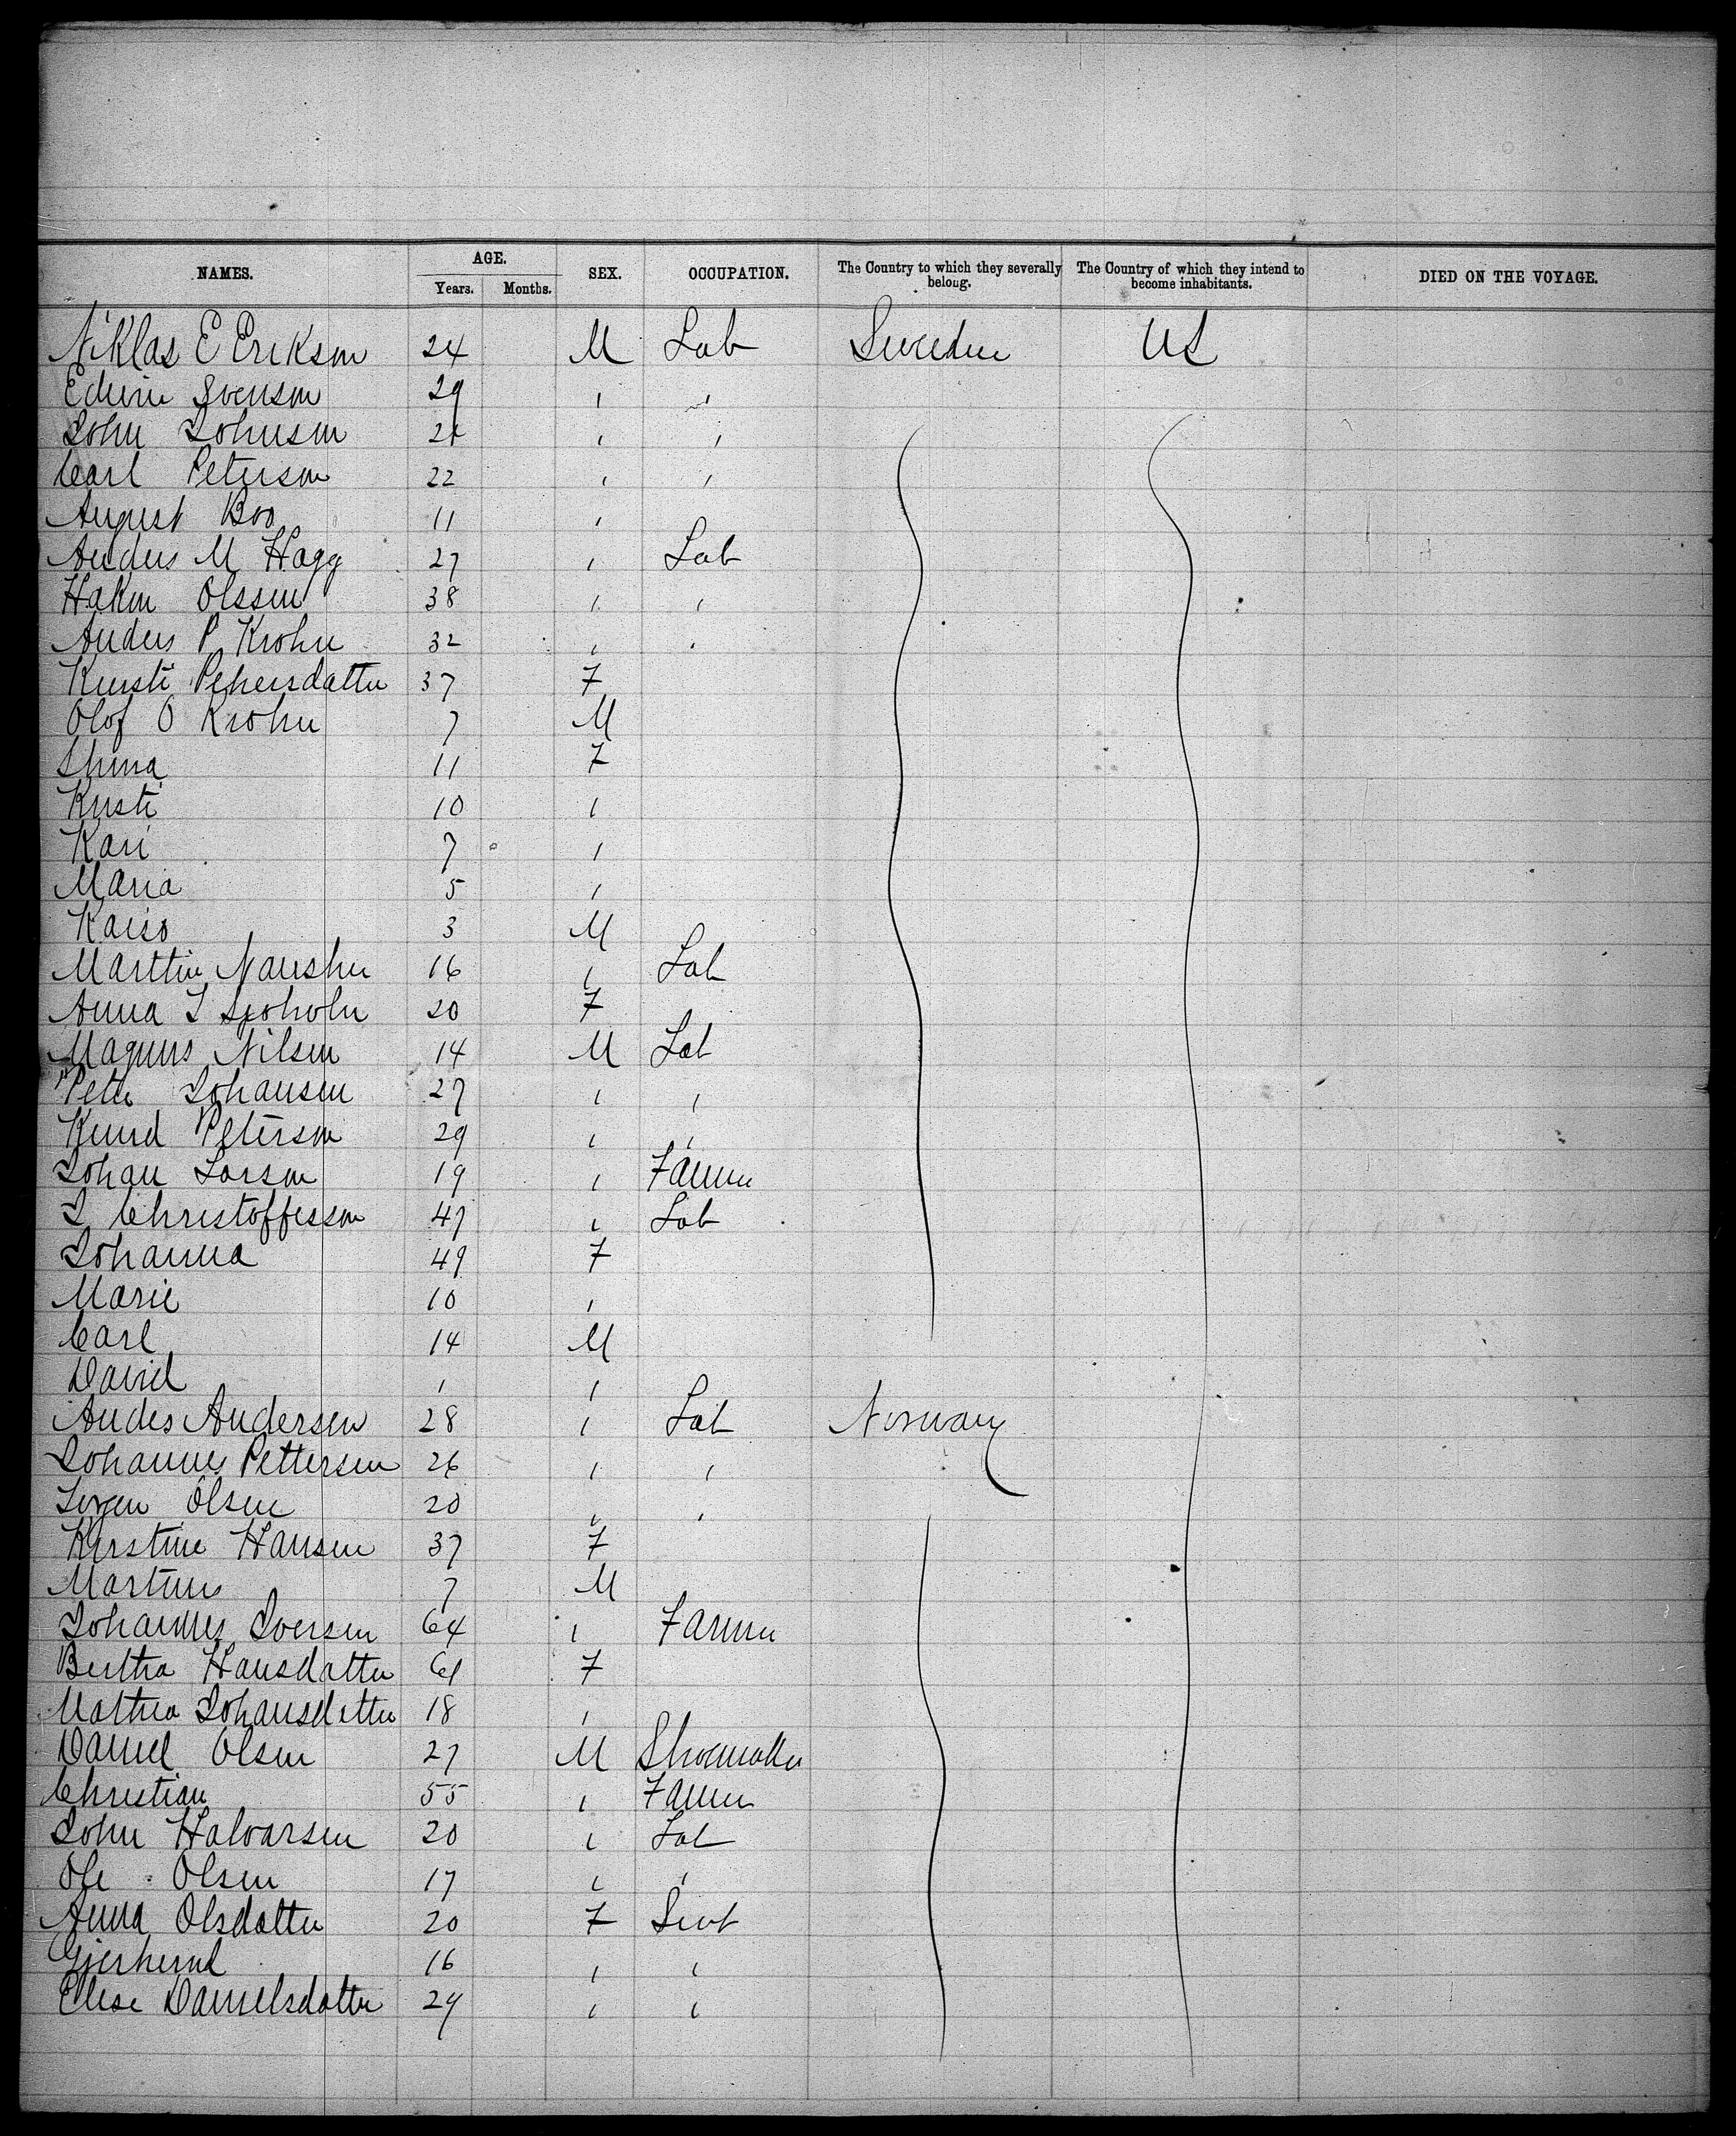 NAMES. AGE. SEX. OCCUPATION. The Country to which they severally belong. The Country of which they intend to become inhabitants. DIED ON THE VOYAGE.
Years. Months.
Niklas E Erikson 24 M Lab Sweden US
Edwin Svenson 29 " "
John Johnson 21 " "
Carl Peterson 22 " "
August Boo 11 "
Anders M Hagg 27 " Lab
Hakon Olssen 38 " "
Anders P Krohn 32 " "
Kersti Pehersdatter 37 F
Olof O Krohn 7 M
Shina 11 F
Kersti 10 "
Kari 7 "
Maria 5 "
Kaiso 3 M
Marttin 16 " Lab
Anna S Sjoholm 20 F
Magnus Nilsen 14 M Lab
Peter Johansen 27 " "
Knud Peterson 29 " "
Johan Larson 19 " Farmer
J Christoffesson 47 " Lab
Johanna 49 F
Marie 10 "
Carl 14 M
David 1 "
Andes Andersen 28 " Lab Norway
Johannes Pettersen 26 " "
Soren Olsen 20 " "
Kirstine Hansen 37 F
Martinus 7 M
Johannes Iversen 64 " Farmer
Bertha Hansdatter 61 F
Mathea Johansdatter 18 "
Daniel Olsen 27 M Shoemaker
Christian 55 " Farmer
John Halvarsen 20 " Lab
Ole Olsen 17 " "
Anna Olsdatter 20 F Servt
16 " "
Elise Danielsdatter 24 " "